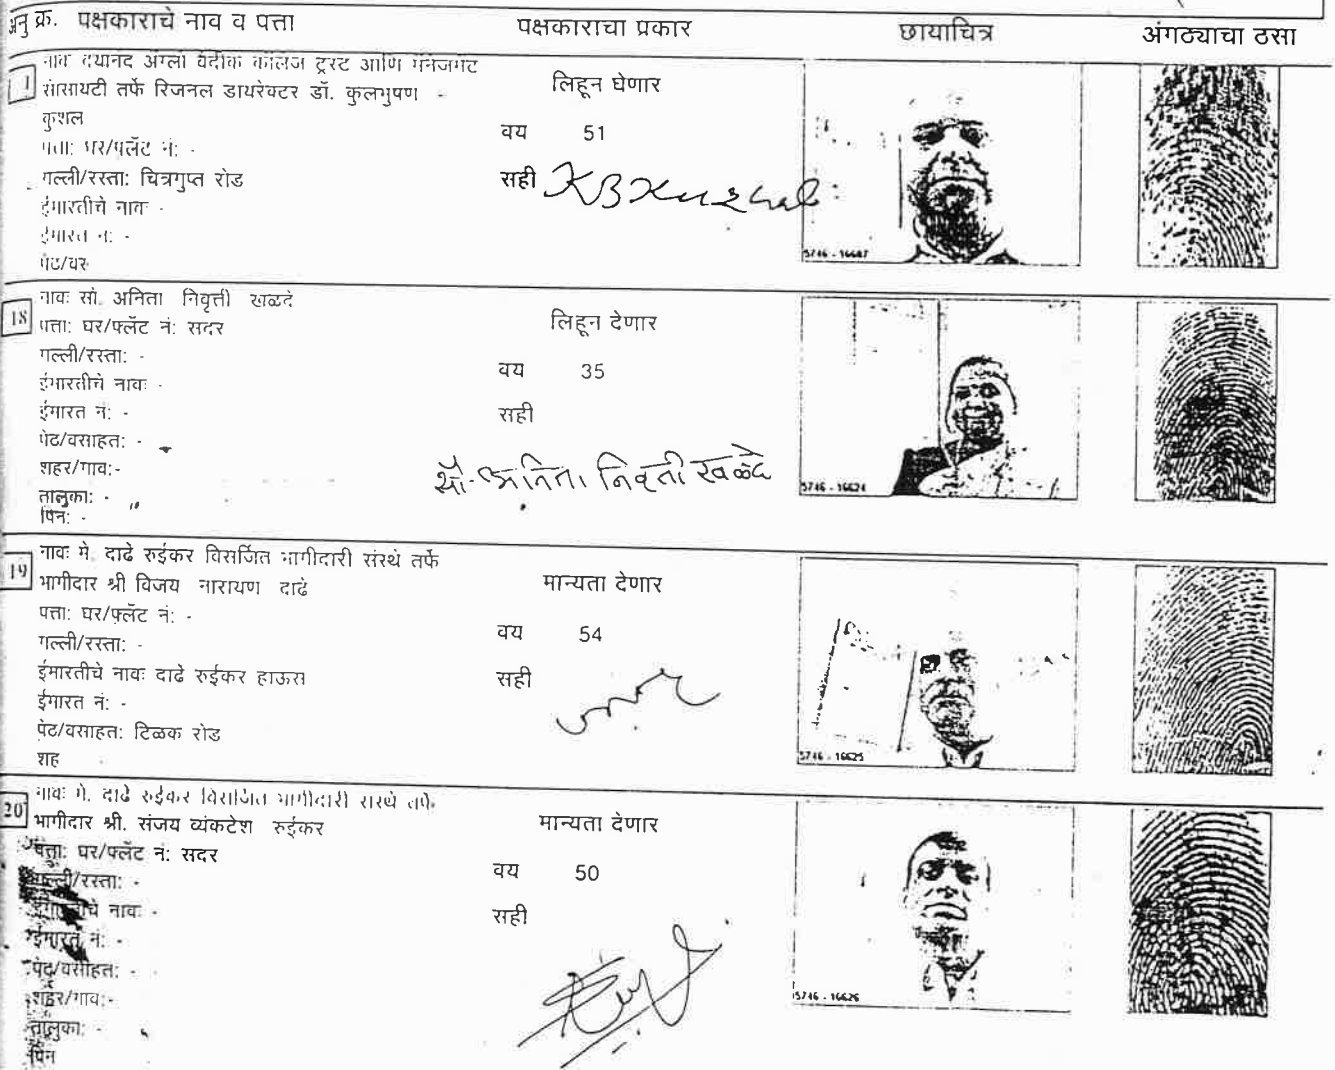 अनु क्र. पक्षकाराचे नाव व पत्ता पक्षकाराचा प्रकार छायाचित्र अंगठ्याचा ठसा
1 नावः दयानंद अँग्लो वैदीक कॉलेज ट्रस्ट आणि मॅनेजमेंट
सोसायटी तर्फे रिजनल डायरेक्टर डॉ. कुलभुषण -
कुशल
पत्ता: घर/फ्लॅट नं: -
गल्ली/रस्ता: चित्रगुप्त रोड
ईमारतीचे नावः -
ईमारत नं: -
पेठ/वस
लिहून घेणार
वय 51
सही KBKushal
5746 - 16607
18 नावः सौ. अनिता निवृत्ती खळदे
पत्ता: घर/फ्लॅट नं: सदर
गल्ली/रस्ता: -
ईमारतीचे नावः -
ईमारत नं: -
पेठ/वसाहत: -
शहर/गाव:-
तालुका: -
पिन: -
लिहून देणार
वय 35
सही
सौ. अनिता निवृती खळदे
5746 - 16624
19 नावः मे. दाढे रुईकर विसर्जित भागीदारी संस्थे तर्फे
भागीदार श्री विजय नारायण दाढे
पत्ता: घर/फ्लॅट नं: -
गल्ली/रस्ता: -
ईमारतीचे नावः दाढे रुईकर हाऊस
ईमारत नं: -
पेठ/वसाहत: टिळक रोड
शह
मान्यता देणार
वय 54
सही
5746 - 16625
20 नावः मे. दाढे रुईकर विसर्जित भागीदारी संस्थे तर्फे
भागीदार श्री. संजय व्यंकटेश रुईकर
पत्ता: घर/फ्लॅट नं: सदर
गल्ली/रस्ता: -
ईमारतीचे नावः -
ईमारत नं: -
पेठ/वसाहत: -
शहर/गाव:-
तालुका: -
पिन
मान्यता देणार
वय 50
सही
5746 - 16626